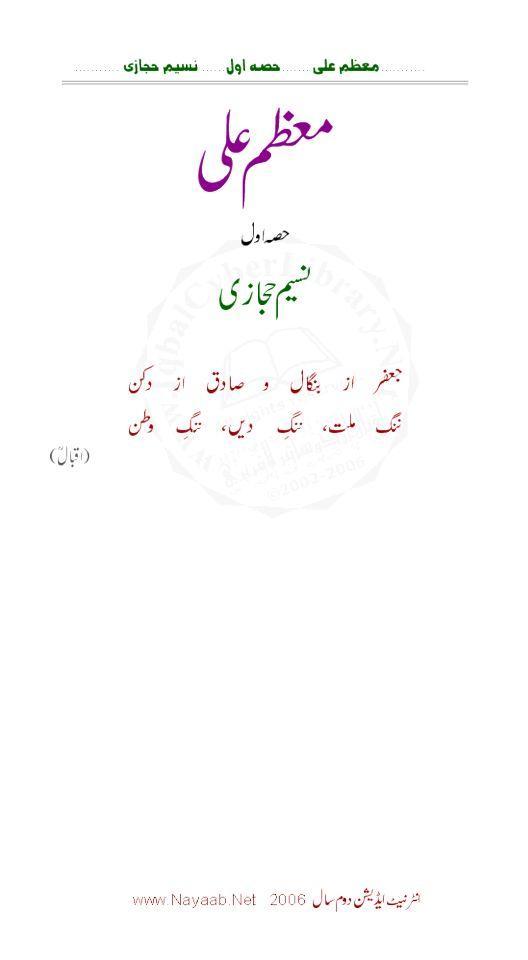 معظم علی ....... حصہ اول ....... نسیم حجازی
معظم علی
حصہ اول
نسیم حجازی
جعفر از بنگال و صادق از دکن
ننگ ملت، ننگِ دیں، ننگِ وطن
(اقبالؒ)
www.IqbalCyberLibrary.Net
©2002-2006
انٹرنیٹ ایڈیشن دوم سال 2006 www.Nayaab.Net